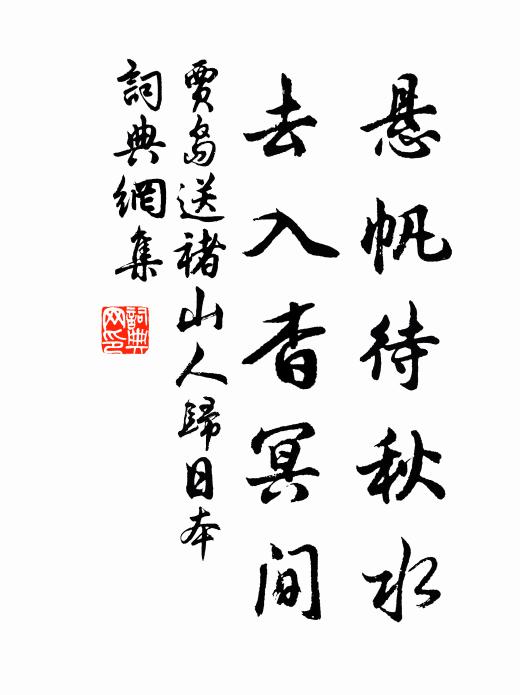 悬帆待秋水
去入杳冥间
賈島送褚山人歸日本
詞典網集
詞典
网印